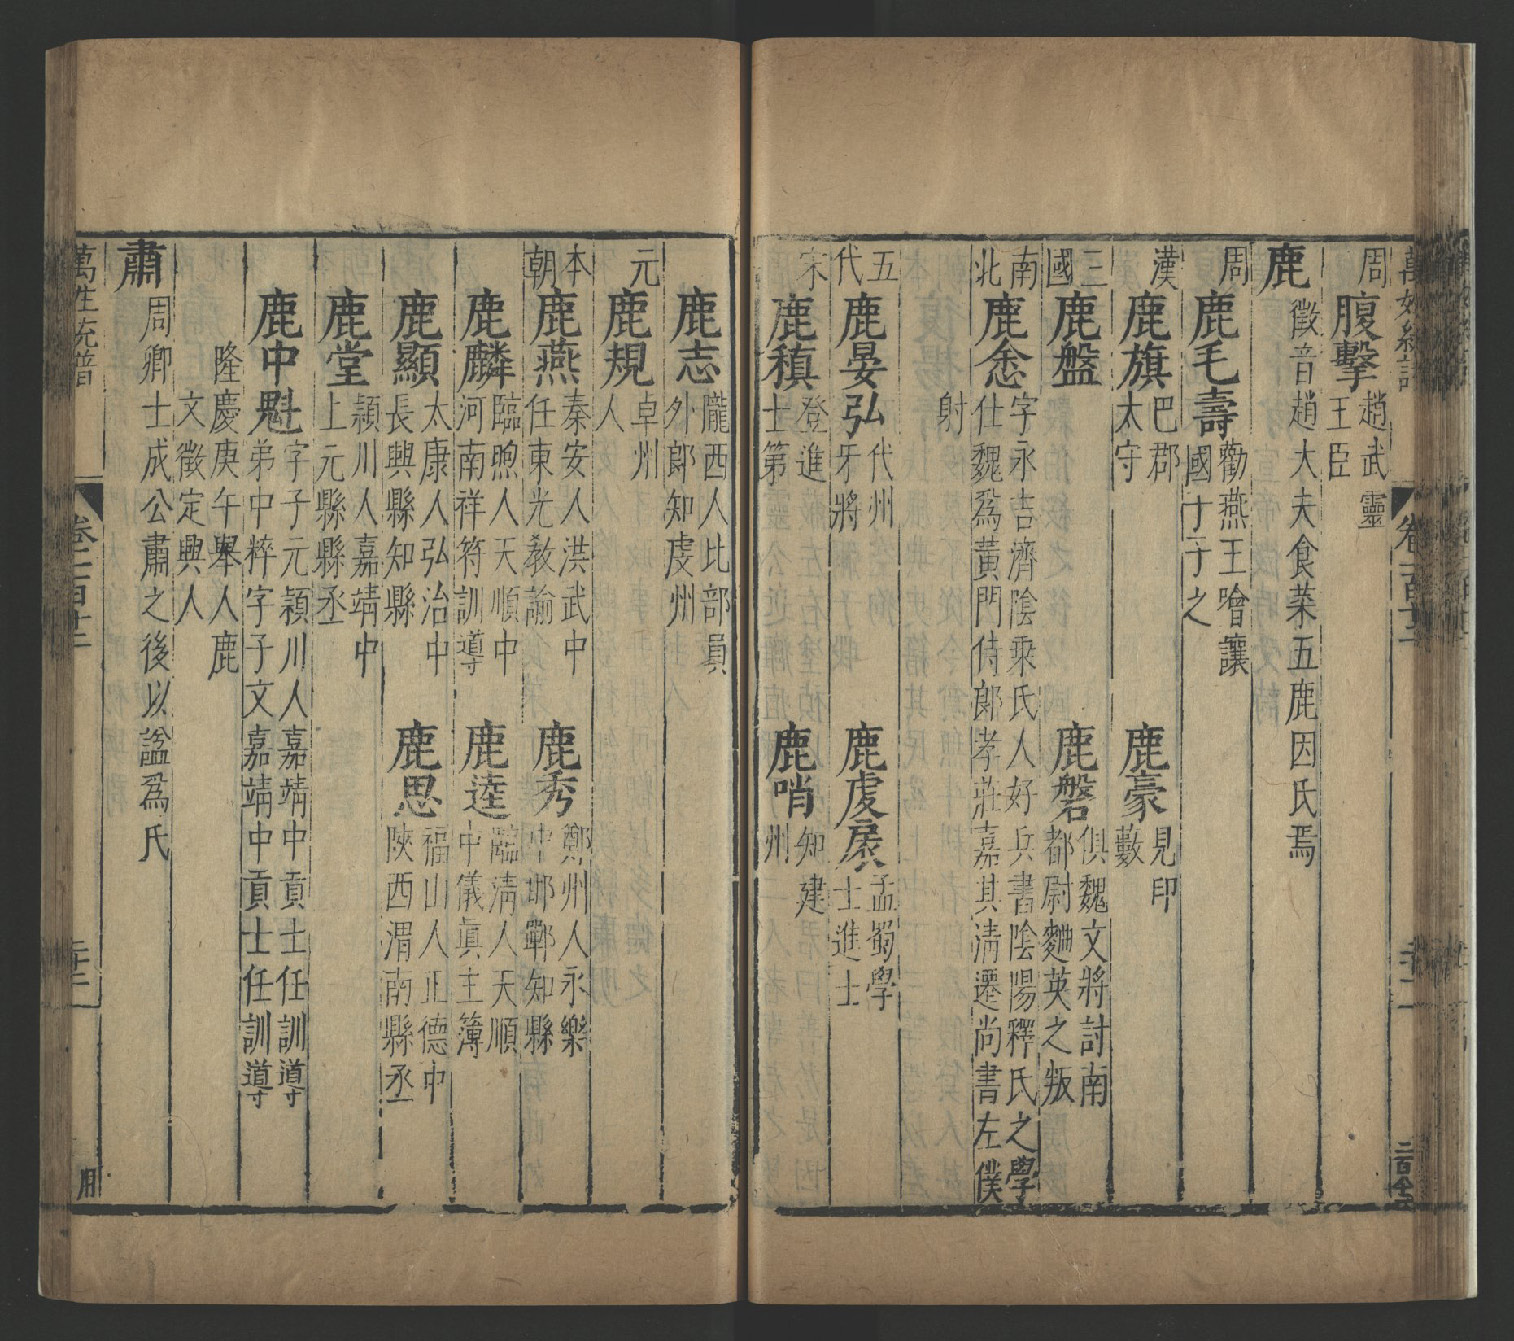 周
腹擊趙武靈
王臣
鹿徵音趙大夫食菜五鹿因氏焉
周
鹿毛壽勸燕王噲讓
國于子之
漢
鹿旗巴郡
太守
鹿豪見印
藪
三國
鹿盤
鹿磐俱魏文將討南
都尉麴英之叛
南北
鹿悆字永吉濟陰乘氏人好兵書陰陽釋氏之學
仕魏爲黃門侍郎孝莊嘉其清遷尚書左僕
射
五代
鹿晏弘代州
牙將
鹿虔扆孟蜀學
士進士
宋
鹿稹登進
士第
鹿哨知建
州
鹿志隴西人比部員
外郎知虔州
元
鹿規卓州
人
本朝
鹿燕秦安人洪武中
任東光教諭
鹿秀鄭州人永樂
中邯鄲知縣
鹿麟臨朐人天順中
河南祥符訓導
鹿逵臨清人天順
中儀眞主簿
鹿顯太康人弘治中
長興縣知縣
鹿思福山人正德中
陝西渭南縣丞
鹿堂潁川人嘉靖中
上元縣縣丞
鹿中魁字子元潁川人嘉靖中貢士任訓導
弟中粹字子文嘉靖中貢士任訓導
隆慶庚午舉人鹿
文徵定興人
肅周卿士成公肅之後以諡爲氏
萬姓統譜